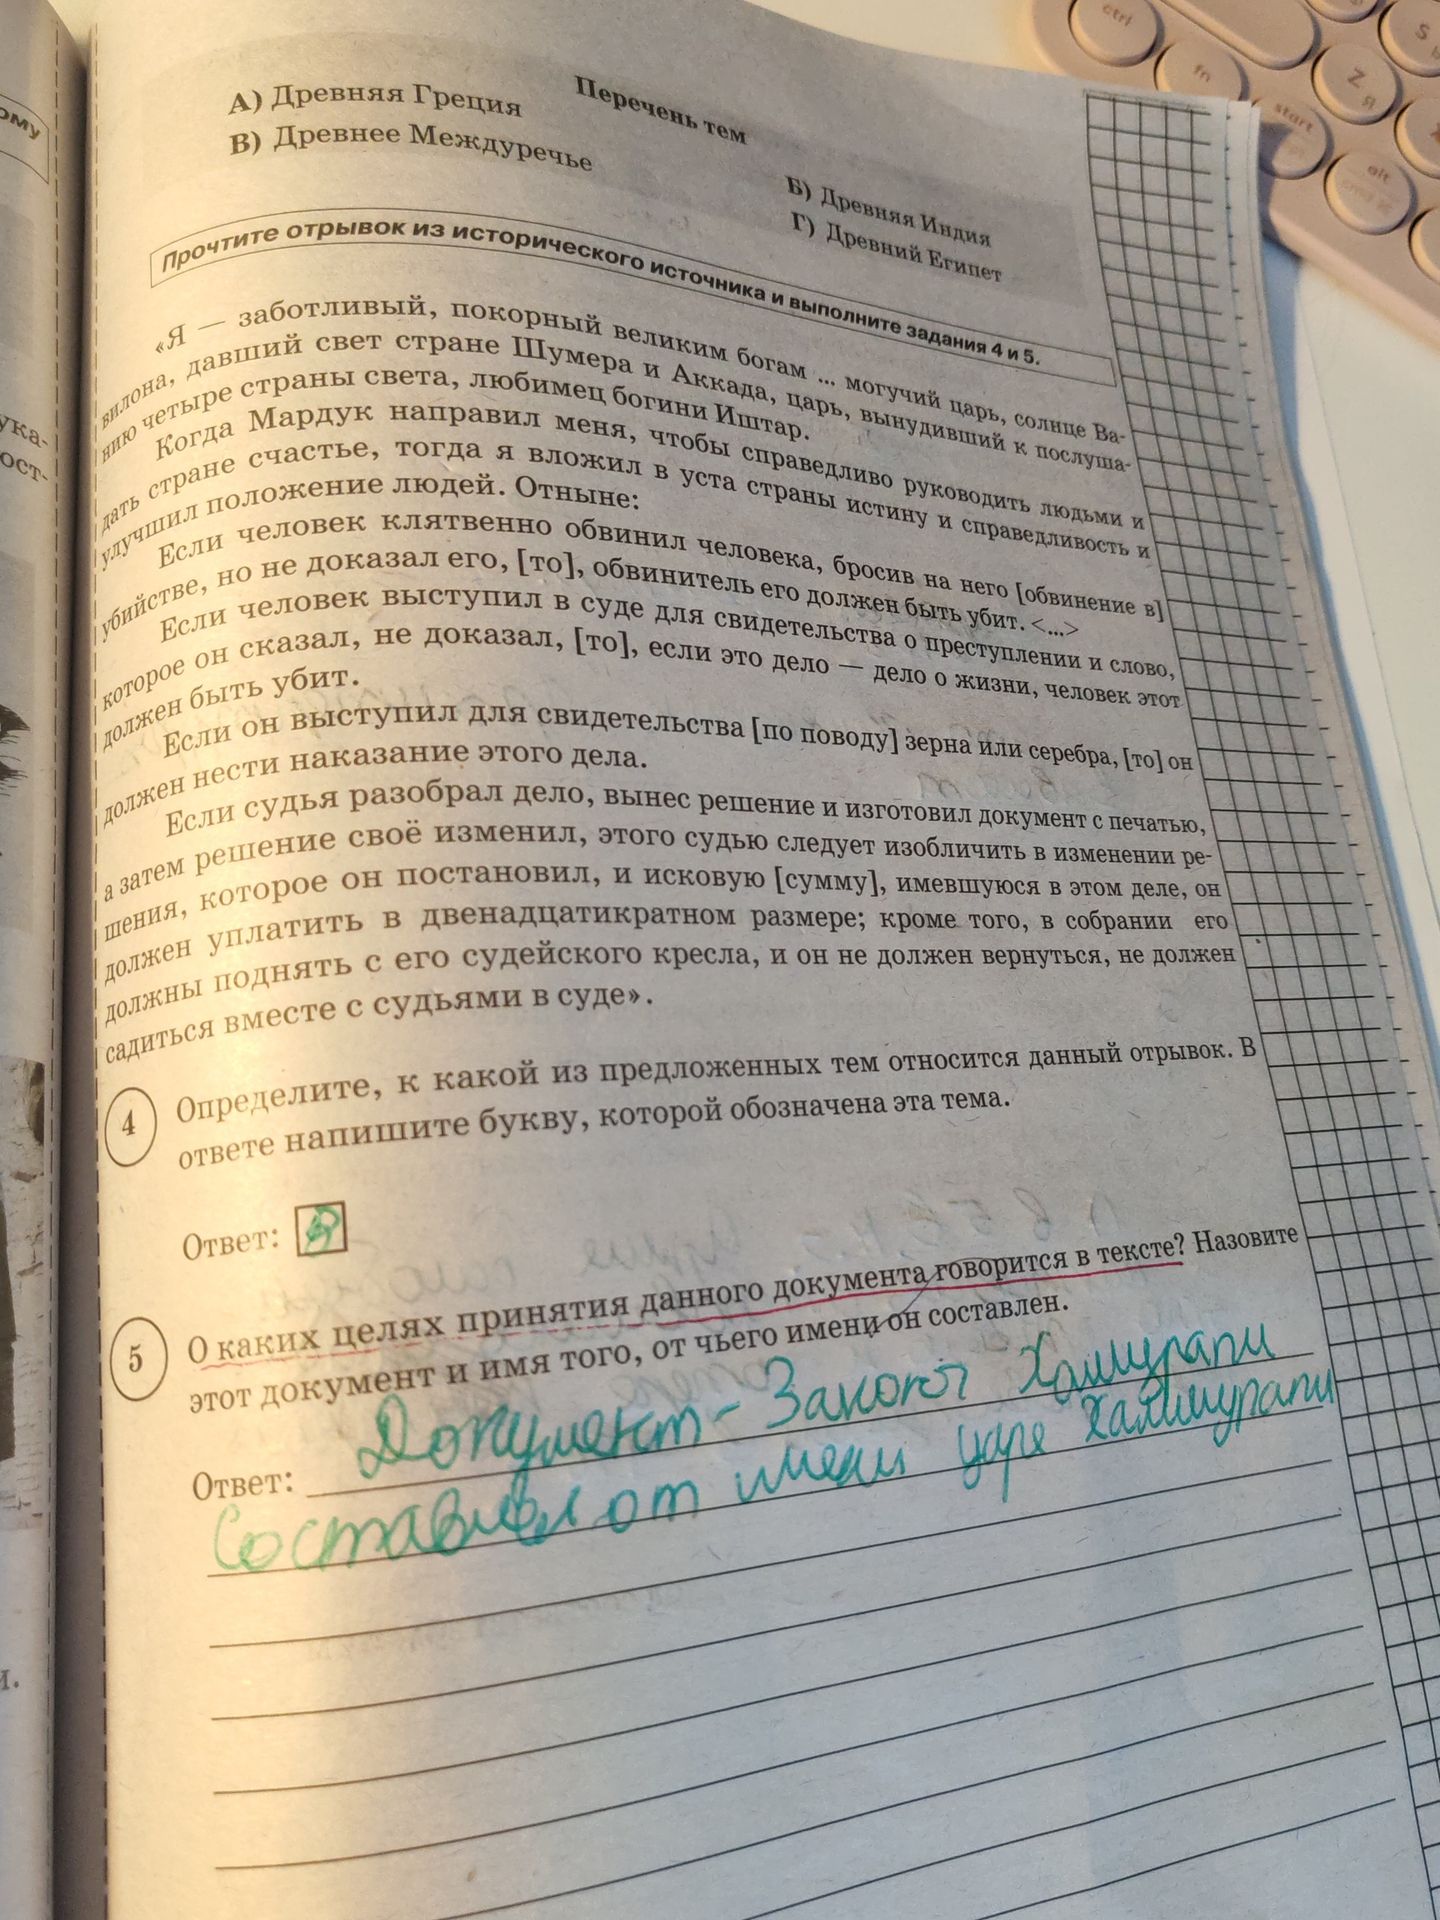 Перечень тем
А) Древняя Греция
Б) Древняя Индия
В) Древнее Междуречье
Г) Древний Египет
Прочтите отрывок из исторического источника и выполните задания 4 и 5.
«Я — заботливый, покорный великим богам ... могучий царь, солнце Ва-
вилона, давший свет стране Шумера и Аккада, царь, вынудивший к послуша-
нию четыре страны света, любимец богини Иштар.
Когда Мардук направил меня, чтобы справедливо руководить людьми и
дать стране счастье, тогда я вложил в уста страны истину и справедливость и
улучшил положение людей. Отныне:
Если человек клятвенно обвинил человека, бросив на него [обвинение в]
убийстве, но не доказал его, [то], обвинитель его должен быть убит. <...>
Если человек выступил в суде для свидетельства о преступлении и слово,
которое он сказал, не доказал, [то], если это дело — дело о жизни, человек этот
должен быть убит.
Если он выступил для свидетельства [по поводу] зерна или серебра, [то] он
должен нести наказание этого дела.
Если судья разобрал дело, вынес решение и изготовил документ с печатью,
а затем решение своё изменил, этого судью следует изобличить в изменении ре-
шения, которое он постановил, и исковую [сумму], имевшуюся в этом деле, он
должен уплатить в двенадцатикратном размере; кроме того, в собрании его
должны поднять с его судейского кресла, и он не должен вернуться, не должен
садиться вместе с судьями в суде».
4 Определите, к какой из предложенных тем относится данный отрывок. В
ответе напишите букву, которой обозначена эта тема.
Ответ:
5 О каких целях принятия данного документа говорится в тексте? Назовите
этот документ и имя того, от чьего имени он составлен.
Ответ: Документ - Хаммурапи
Составлен от имени царя Хаммурапи
ому
ука-
ост-
и.
ctrl
fn
start
alt
Z
Я
S